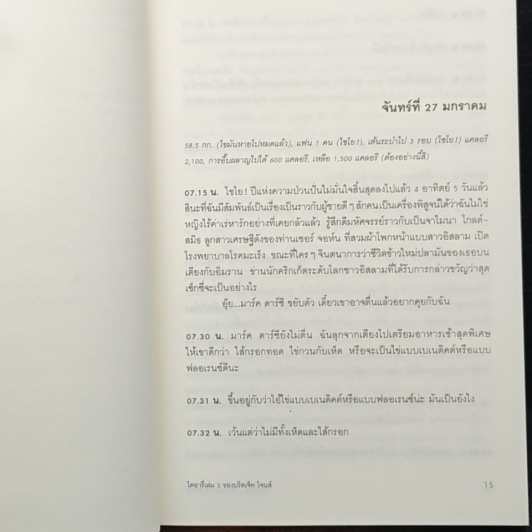 จันทร์ที่ 27 มกราคม
58.5 กก. (ไขมันหายไปหมดแล้ว), แฟน 1 คน (ไชโย!), เต้นระบำไป 3 รอบ (ไชโย!) แคลอรี
2,100, การเผาผลาญไปได้ 600 แคลอรี, เหลือ 1,500 แคลอรี (ต้องอย่างนี้สิ)
07.15 น. ไชโย! ปีแห่งความป่วนปั่นไม่มั่นใจสิ้นสุดลงไปแล้ว 4 อาทิตย์ 5 วันแล้ว
สินะที่ฉันมีสัมพันธ์เป็นเรื่องเป็นราวกับผู้ชายดีๆ สักคนเป็นเครื่องพิสูจน์ได้ว่าฉันไม่ใช่
หญิงไร้ค่าเร่หารักอย่างที่เคยกลัวแล้ว รู้สึกดีมหัศจรรย์ราวกับเป็นจาไมนา โกลด์-
สมิธ ลูกสาวเศรษฐีดังของท่านเซอร์ จอห์น ที่สวมผ้าโพกหน้าแบบสาวอิสลาม เปิด
โรงพยาบาลโรคมะเร็ง ขณะที่ใครๆ จินตนาการว่าชีวิตข้าวใหม่ปลามันของเธอบน
เตียงกับอิมราน ข่านนักคริกเก็ตระดับโลกชาวอิสลามที่ได้รับการกล่าวขวัญว่าสุด
เซ็กซี่จะเป็นอย่างไร
อุ๊ย...มาร์ค ดาร์ซี ขยับตัว เดี๋ยวเขาอาจตื่นแล้วอยากคุยกับฉัน
07.30 น. มาร์ค ดาร์ซียังไม่ตื่น ฉันลุกจากเตียงไปเตรียมอาหารเช้าสุดพิเศษ
ให้เขาดีกว่า ไส้กรอกทอด ไข่กวนกับเห็ด หรือจะเป็นไข่แบบเบเนดิคต์หรือแบบ
ฟลอเรนซ์ดีนะ
07.31 น. ขึ้นอยู่กับว่าไอ้ไข่แบบเบเนดิคต์หรือแบบฟลอเรนซ์น่ะ มันเป็นยังไง
07.32 น. เว้นแต่ว่าไม่มีทั้งเห็ดและไส้กรอก
ไดอารี่เล่ม 2 ของบริดเจ็ท โจนส์ 15